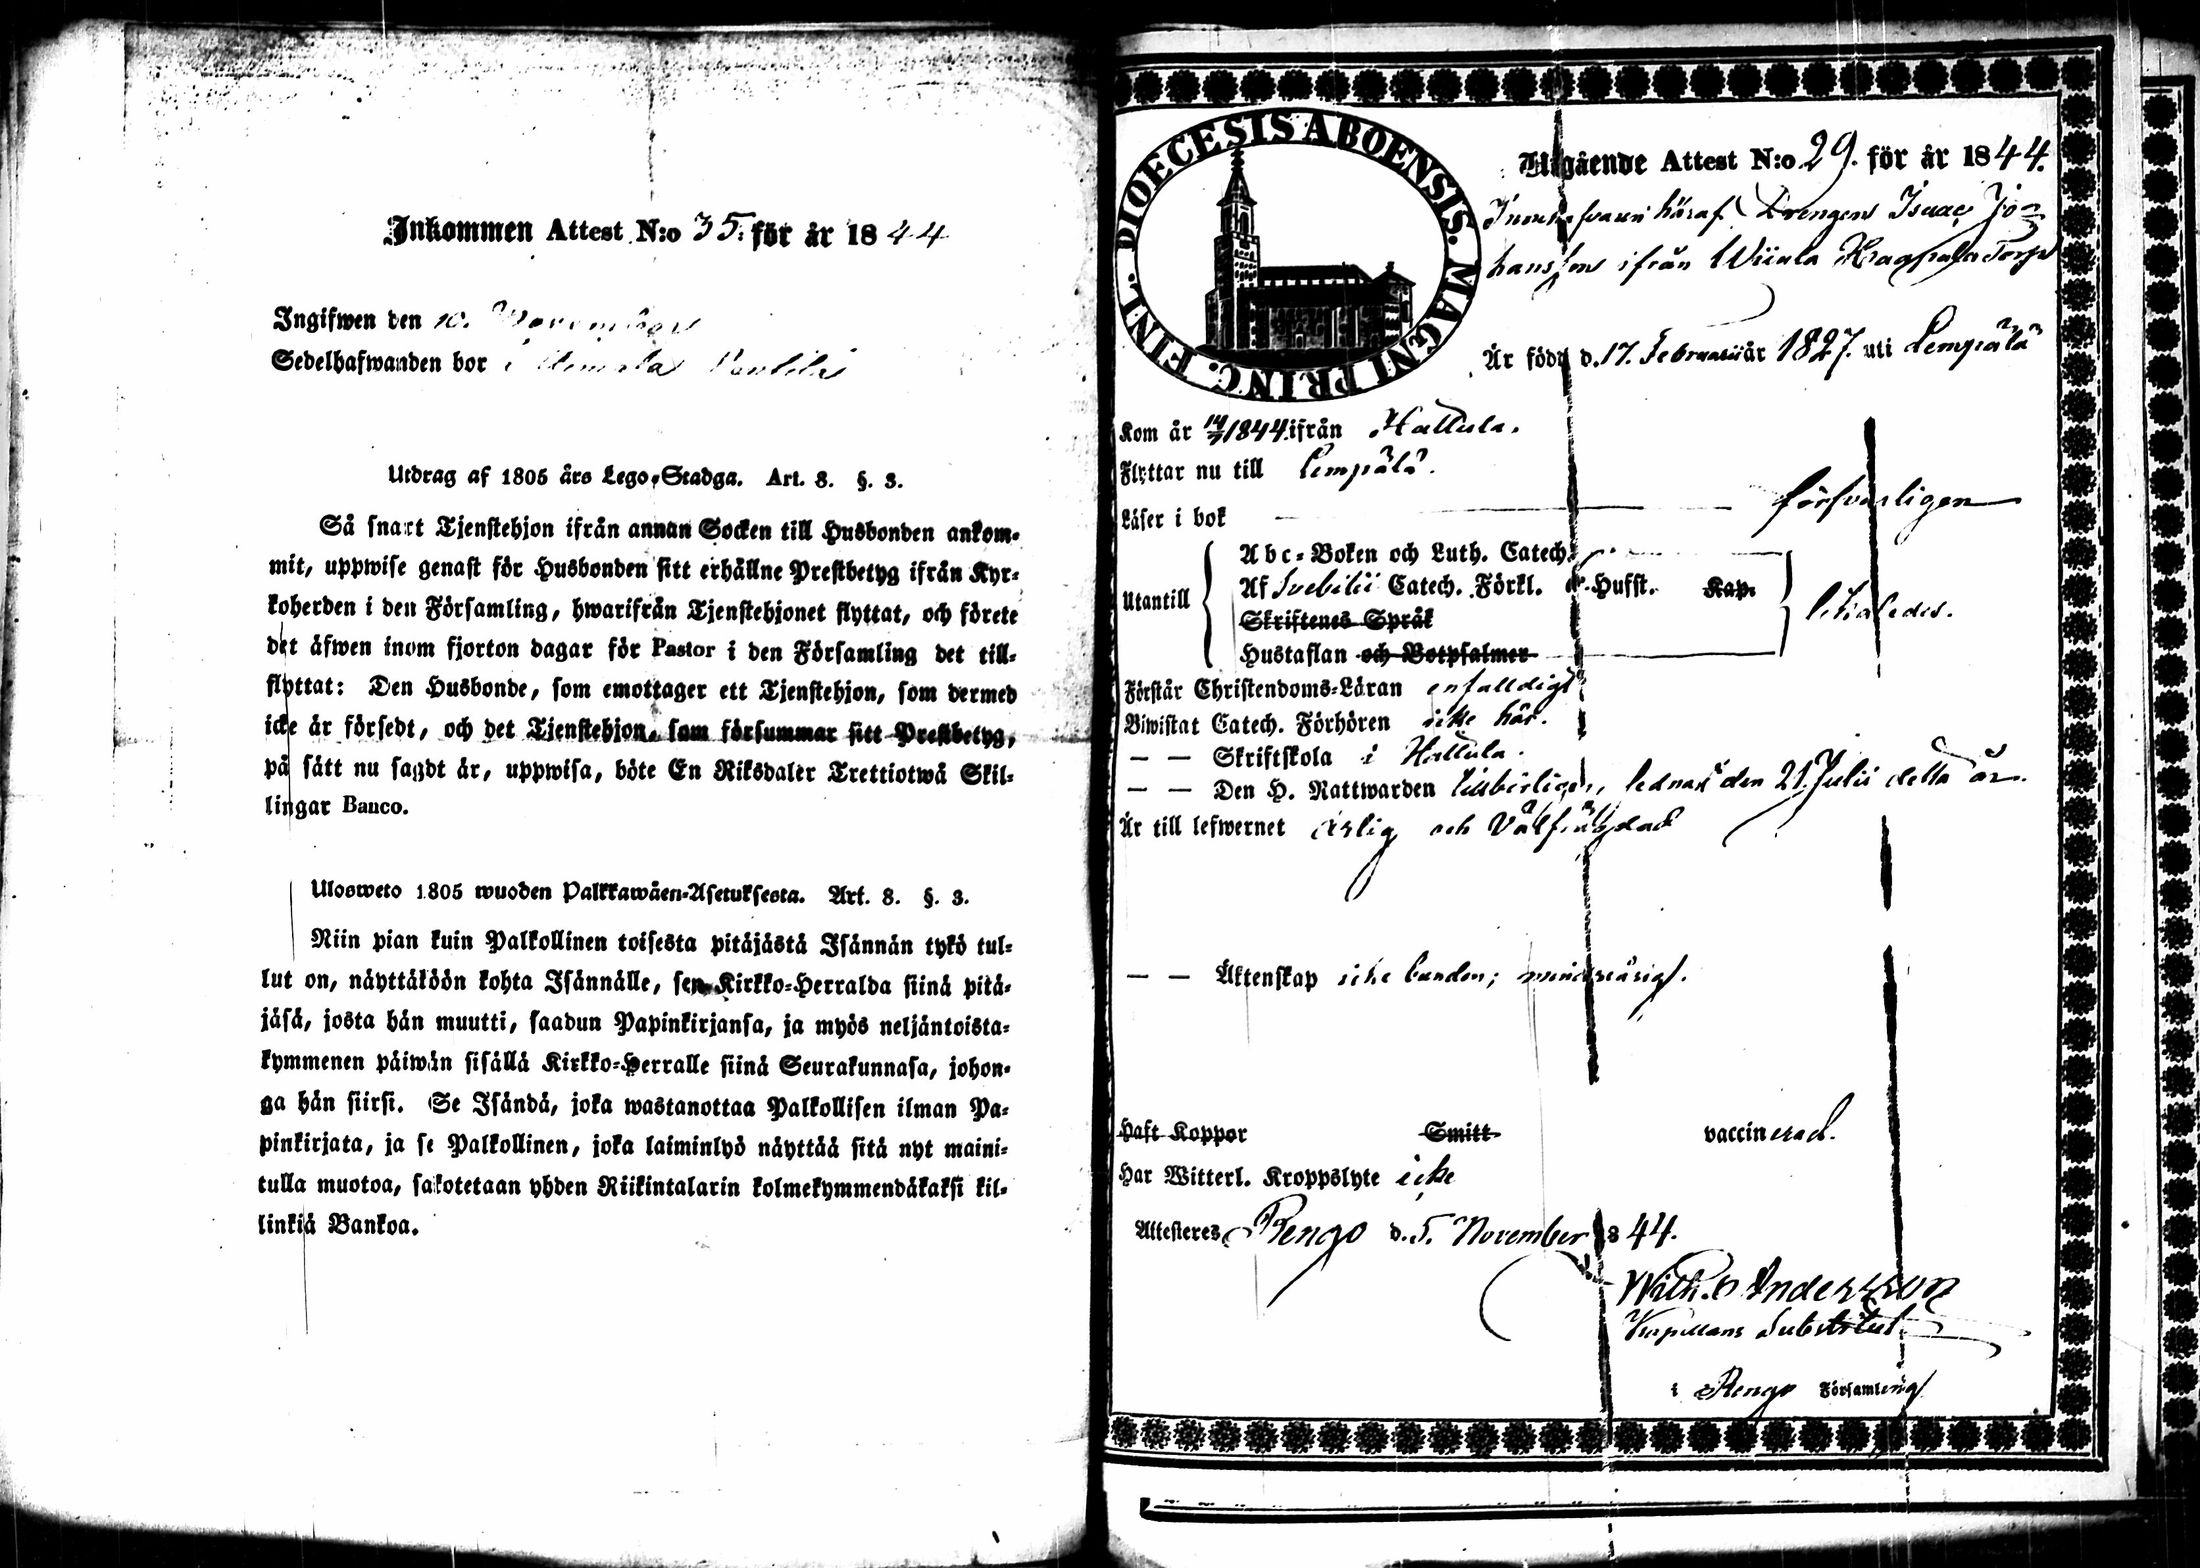 Inkommen Attest N:o 35. för år 1844
Ingifwen den 10. November
Sedelhafwanden bor i
Utdrag af 1805 års Lego-Stadga. Art. 8. §. 3.
Så snart Tjenstehjon ifrån annan Socken till Husbonden ankom-
mit, uppwise genast för Husbonden sitt erhållne Prestbetyg ifrån Kyr-
koherden i den Församling, hwarifrån Tjenstehjonet flyttat, och förete
det äfwen inom fjorton dagar för Pastor i den Församling det till-
flyttat: Den Husbonde, som emottager ett Tjenstehjon, som dermed
icke är försedt, och det Tjenstehjon, som försummar sitt Prestbetyg,
på sätt nu sagdt är, uppwisa, böte En Riksdaler Trettiotwå Skil-
lingar Banco.
Ulosweto 1805 wuoden Palkkawäen-Asetuksesta. Art. 8. §. 3.
Niin pian kuin Palkollinen toisesta pitäjästä Isännän tykö tul-
lut on, näyttäköön kohta Isännälle, sen Kirkko-Herralda siinä pitä-
jäsä, josta hän muutti, saadun Papinkirjansa, ja myös neljäntoista-
kymmenen päiwän sisällä Kirkko-Herralle siinä Seurakunnasa, johon-
ga hän siirsi. Se Isändä, joka wastanottaa Palkollisen ilman Pa-
pinkirjata, ja se Palkollinen, joka laiminlyö näyttää sitä nyt maini-
tulla muotoa, sakotetaan yhden Riikintalarin kolmekymmendäkaksi kil-
linkiä Bankoa.
DIOECESIS ABOENSIS. MAGNI PRINC. FINL.
Utgående Attest N:o 29. för år 1844.
Innehafvaren häraf Drengen Isaac Jo-
hansson ifrån Wiiala Torp
Är född d. 17. Februarii år 1827. uti Lempälä
Kom år 14/7 1844 ifrån Hattula.
Flyttar nu till Lempälä.
Läser i bok försvarligen
Utantill
Abc-Boken och Luth. Catech.
Af Svebilii Catech. Förkl. Hufst. Kap.
Skriftenes Språk
Hustaflan och Botpsalmer
likaledes.
Förstår Christendoms-Läran enfalldigt
Biwistat Catech. Förhören icke här.
— — Skriftskola i Hattula.
— — Den H. Nattwarden tillbörligen, lednast den 21. Julii detta år.
Är till lefwernet ärlig och välfrägdad
— — Äktenskap icke bunden; minderårig.
Haft Koppor Smitt vaccinerad.
Har Witterl. Kroppslyte icke
Attesteres, Rengo d. 5. November 1844.
Wilh. Andersson
Kapellans Substitut.
i Rengo Församling